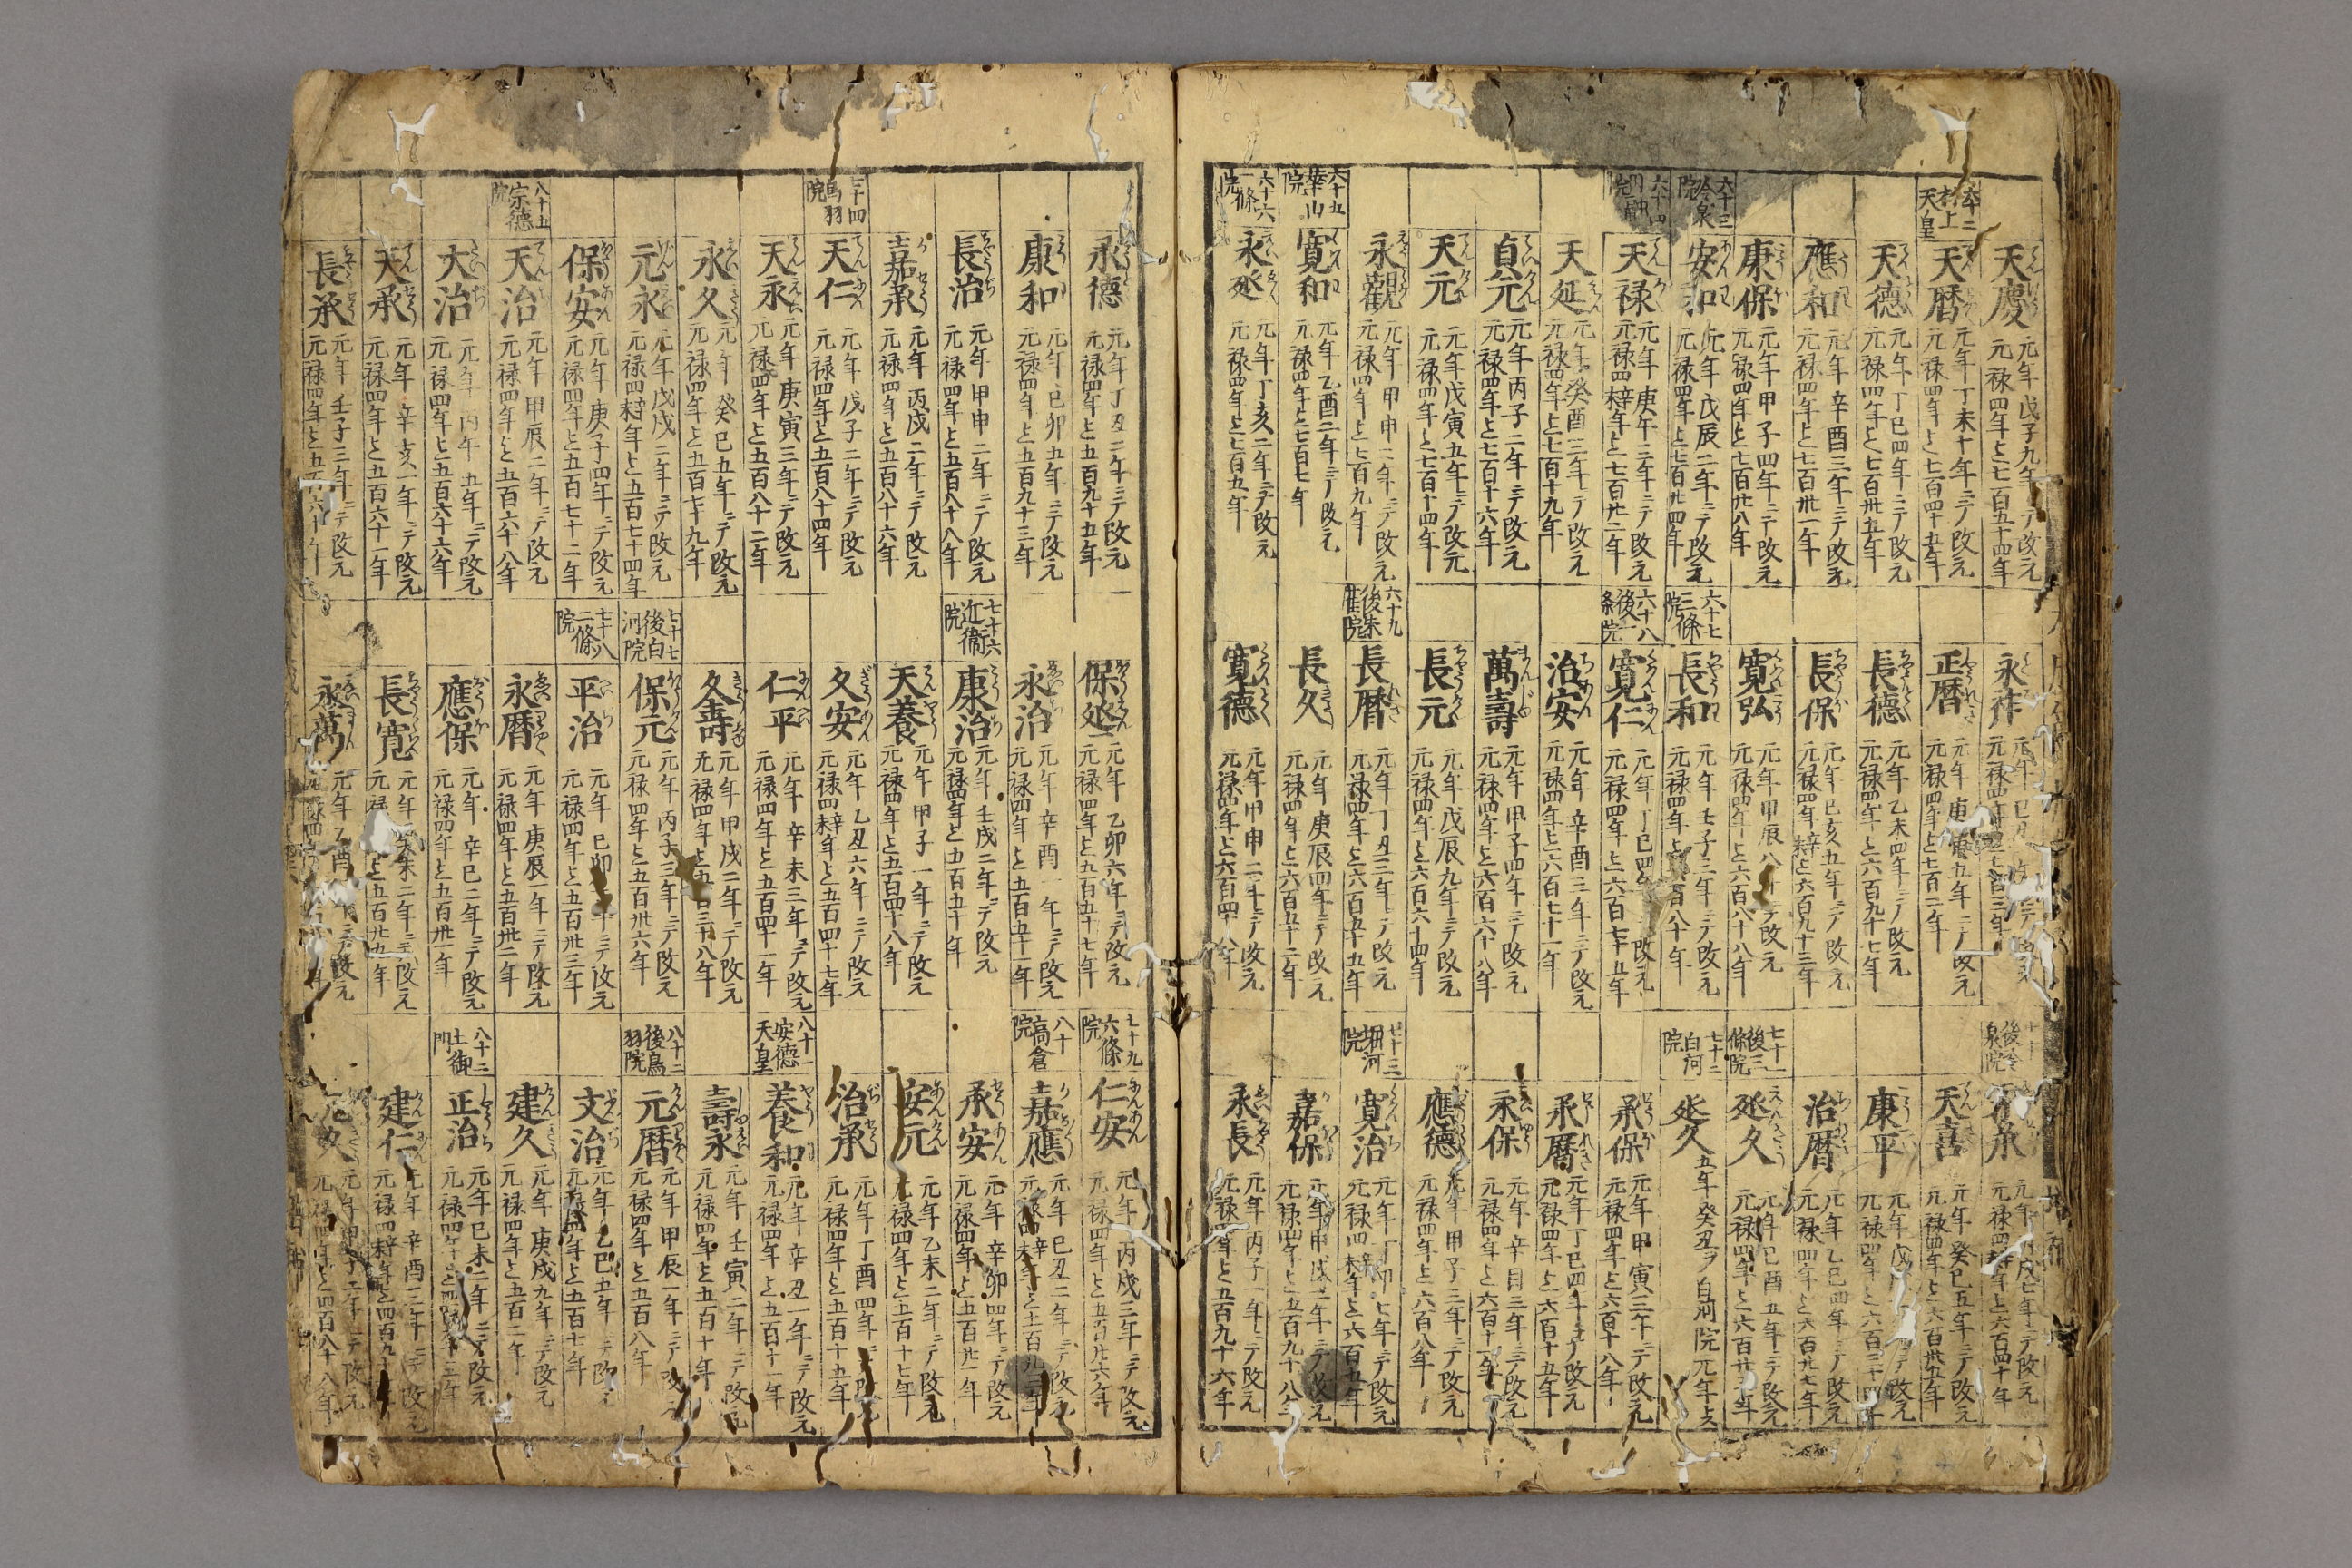 天慶
元年戊子九年ニテ改元
元禄四年と七百五十四年
六十二
村上
天皇
天暦
元年丁未十年ニテ改元
元禄四年と七百四十五年
天德
元年丁巳四年ニテ改元
元禄四年と七百卅五年
應和
元年辛酉三年ニテ改元
元禄四年と七百卅一年
康保
元年甲子四年ニテ改元
元禄四年と七百廿八年
六十三
冷泉
院
安和
元年戊辰二年ニテ改元
元禄四年と七百廿四年
六十四
院
天禄
元年庚午三年ニテ改元
元禄四辛未年と七百廿二年
天延
元年癸酉三年ニテ改元
元禄四年と七百十九年
貞元
元年丙子二年ニテ改元
元禄四年と七百十六年
天元
元年戊寅五年ニテ改元
元禄四年と七百十四年
永觀
元年甲申二年ニテ改元
元禄四年と七百九年
六十五
華山
院
寛和
元年乙酉二年ニテ改元
元禄四年と七百七年
六十六
一條
院
永延
元年丁亥二年ニテ改元
元禄四年と七百五年
永祚
元年己丑
正暦
元年庚寅五年ニテ改元
元禄四年と七百二年
長德
元年乙未四年ニテ改元
元禄四年と六百九十七年
長保
元年己亥五年ニテ改元
元禄四年辛未と六百九十三年
寛弘
元年甲辰八年ニテ改元
元禄四年と六百八十八年
六十七
三條
院
長和
元年壬子三年ニテ改元
元禄四年と六百八十年
六十八
後一
條院
寛仁
元年丁巳四年ニテ改元
元禄四年と六百七十五年
治安
元年辛酉三年ニテ改元
元禄四年と六百七十一年
萬壽
元年甲子四年ニテ改元
元禄四年と六百六十八年
長元
元年戊辰九年ニテ改元
元禄四年と六百六十四年
六十九
後朱
雀院
長暦
元年丁丑三年ニテ改元
元禄四年と六百五十五年
長久
元年庚辰四年ニテ改元
元禄四年と六百五十二年
寛德
元年甲申二年ニテ改元
元禄四年と六百四十八年
後冷
泉院
永承
元年丙戌七年ニテ改元
元禄四辛未年と六百四十年
天喜
元年癸巳五年ニテ改元
元禄四年と六百卅五年
康平
元年戊戌 ニテ改元
元禄四年と六百三十四年
治暦
元年乙巳四年ニテ改元
元禄四年と六百廿七年
七十一
後三
條院
延久
元年己酉五年ニテ改元
元禄四年と六百廿三年
七十二
白河
院
延久
五年癸丑ヲ白河院元年と
承保
元年甲寅三年ニテ改元
元禄四年と六百十八年
承暦
元年丁巳四年ニテ改元
元禄四年と六百十五年
永保
元年辛酉三年ニテ改元
元禄四年と六百十一年
應德
元年甲子三年ニテ改元
元禄四年と六百八年
七十三
堀河
院
寛治
元年丁卯七年ニテ改元
元禄四辛未年と六百五年
嘉保
元年甲戌二年ニテ改元
元禄四年と五百九十八年
永長
元年丙子一年ニテ改元
元禄四年と五百九十六年
承德
元年丁丑二年ニテ改元
元禄四年と五百九十五年
康和
元年己卯五年ニテ改元
元禄四年と五百九十三年
長治
元年甲申二年ニテ改元
元禄四年と五百八十八年
嘉承
元年丙戌二年ニテ改元
元禄四年と五百八十六年
七十四
鳥羽
院
天仁
元年戊子二年ニテ改元
元禄四年と五百八十四年
天永
元年庚寅三年ニテ改元
元禄四年と五百八十二年
永久
元年癸巳五年ニテ改元
元禄四年と五百七十九年
元永
元年戊戌二年ニテ改元
元禄四辛未年と五百七十四年
保安
元年庚子四年ニテ改元
元禄四年と五百七十二年
八十五
宗德
院
天治
元年甲辰二年ニテ改元
元禄四年と五百六十八年
大治
元年丙午五年ニテ改元
元禄四年と五百六十六年
天承
元年辛亥一年ニテ改元
元禄四年と五百六十一年
長承
元年壬子三年ニテ改元
元禄四年と五百六十年
保延
元年乙卯六年ニテ改元
元禄四年と五百五十七年
永治
元年辛酉一年ニテ改元
元禄四年と五百五十一年
七十六
近衛
院
康治
元年壬戌二年ニテ改元
元禄四年と五百五十年
天養
元年甲子一年ニテ改元
元禄四年と五百四十八年
久安
元年乙丑六年ニテ改元
元禄四辛未年と五百四十七年
仁平
元年辛未三年ニテ改元
元禄四年と五百四十一年
久壽
元年甲戌二年ニテ改元
元禄四年と五百三十八年
七十七
後白
河院
保元
元年丙子三年ニテ改元
元禄四年と五百卅六年
七十八
二條
院
平治
元年己卯一年ニテ改元
元禄四年と五百卅三年
永暦
元年庚辰一年ニテ改元
元禄四年と五百卅二年
應保
元年辛巳二年ニテ改元
元禄四年と五百卅一年
長寛
元年癸未二年ニテ改元
元禄 と五百廿九年
永萬
元年乙酉 ニテ改元
七十九
六條
院
仁安
元年丙戌三年ニテ改元
元禄四年と五百廿六年
八十
高倉
院
嘉應
元年己丑二年ニテ改元
元禄四辛未年と五百廿三年
承安
元年辛卯四年ニテ改元
元禄四年と五百廿一年
安元
元年乙未二年ニテ改元
元禄四年と五百十七年
治承
元年丁酉四年ニテ改元
元禄四年と五百十五年
八十一
安德
天皇
養和
元年辛丑一年ニテ改元
元禄四年と五百十一年
壽永
元年壬寅二年ニテ改元
元禄四年と五百十年
八十二
後鳥
羽院
元暦
元年甲辰一年ニテ改元
元禄四年と五百八年
文治
元年乙巳五年ニテ改元
元禄四年と五百十年
建久
元年庚戌九年ニテ改元
元禄四年と五百二年
八十三
土御
門
正治
元年己未二年ニテ改元
元禄四年と四百九十三年
建仁
元年辛酉三年ニテ改元
元禄四辛未年と四百九十
元久
元年甲子二年ニテ改元
元禄四年と四百八十八年